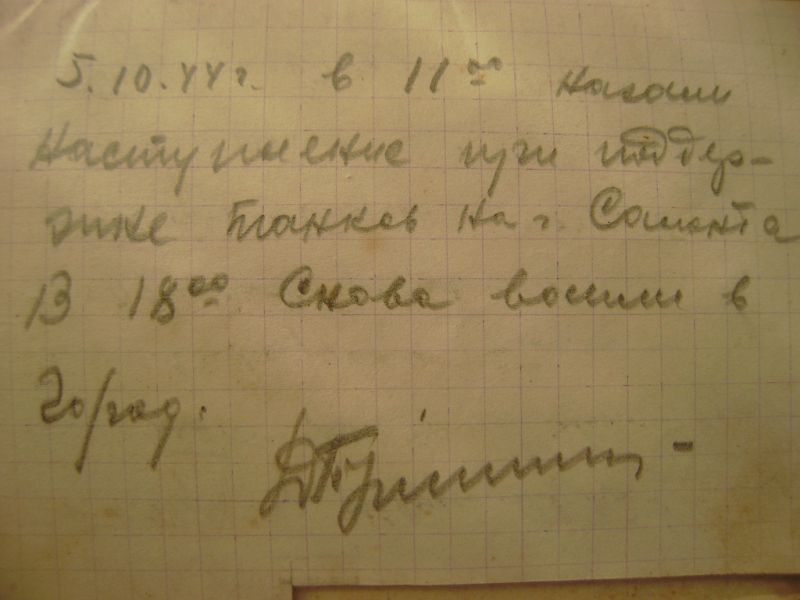 5.10.44 г. в 11 00 начали
наступление при поддер-
жке танков на г. Салонта
В 18 00 Снова вошли в
город.